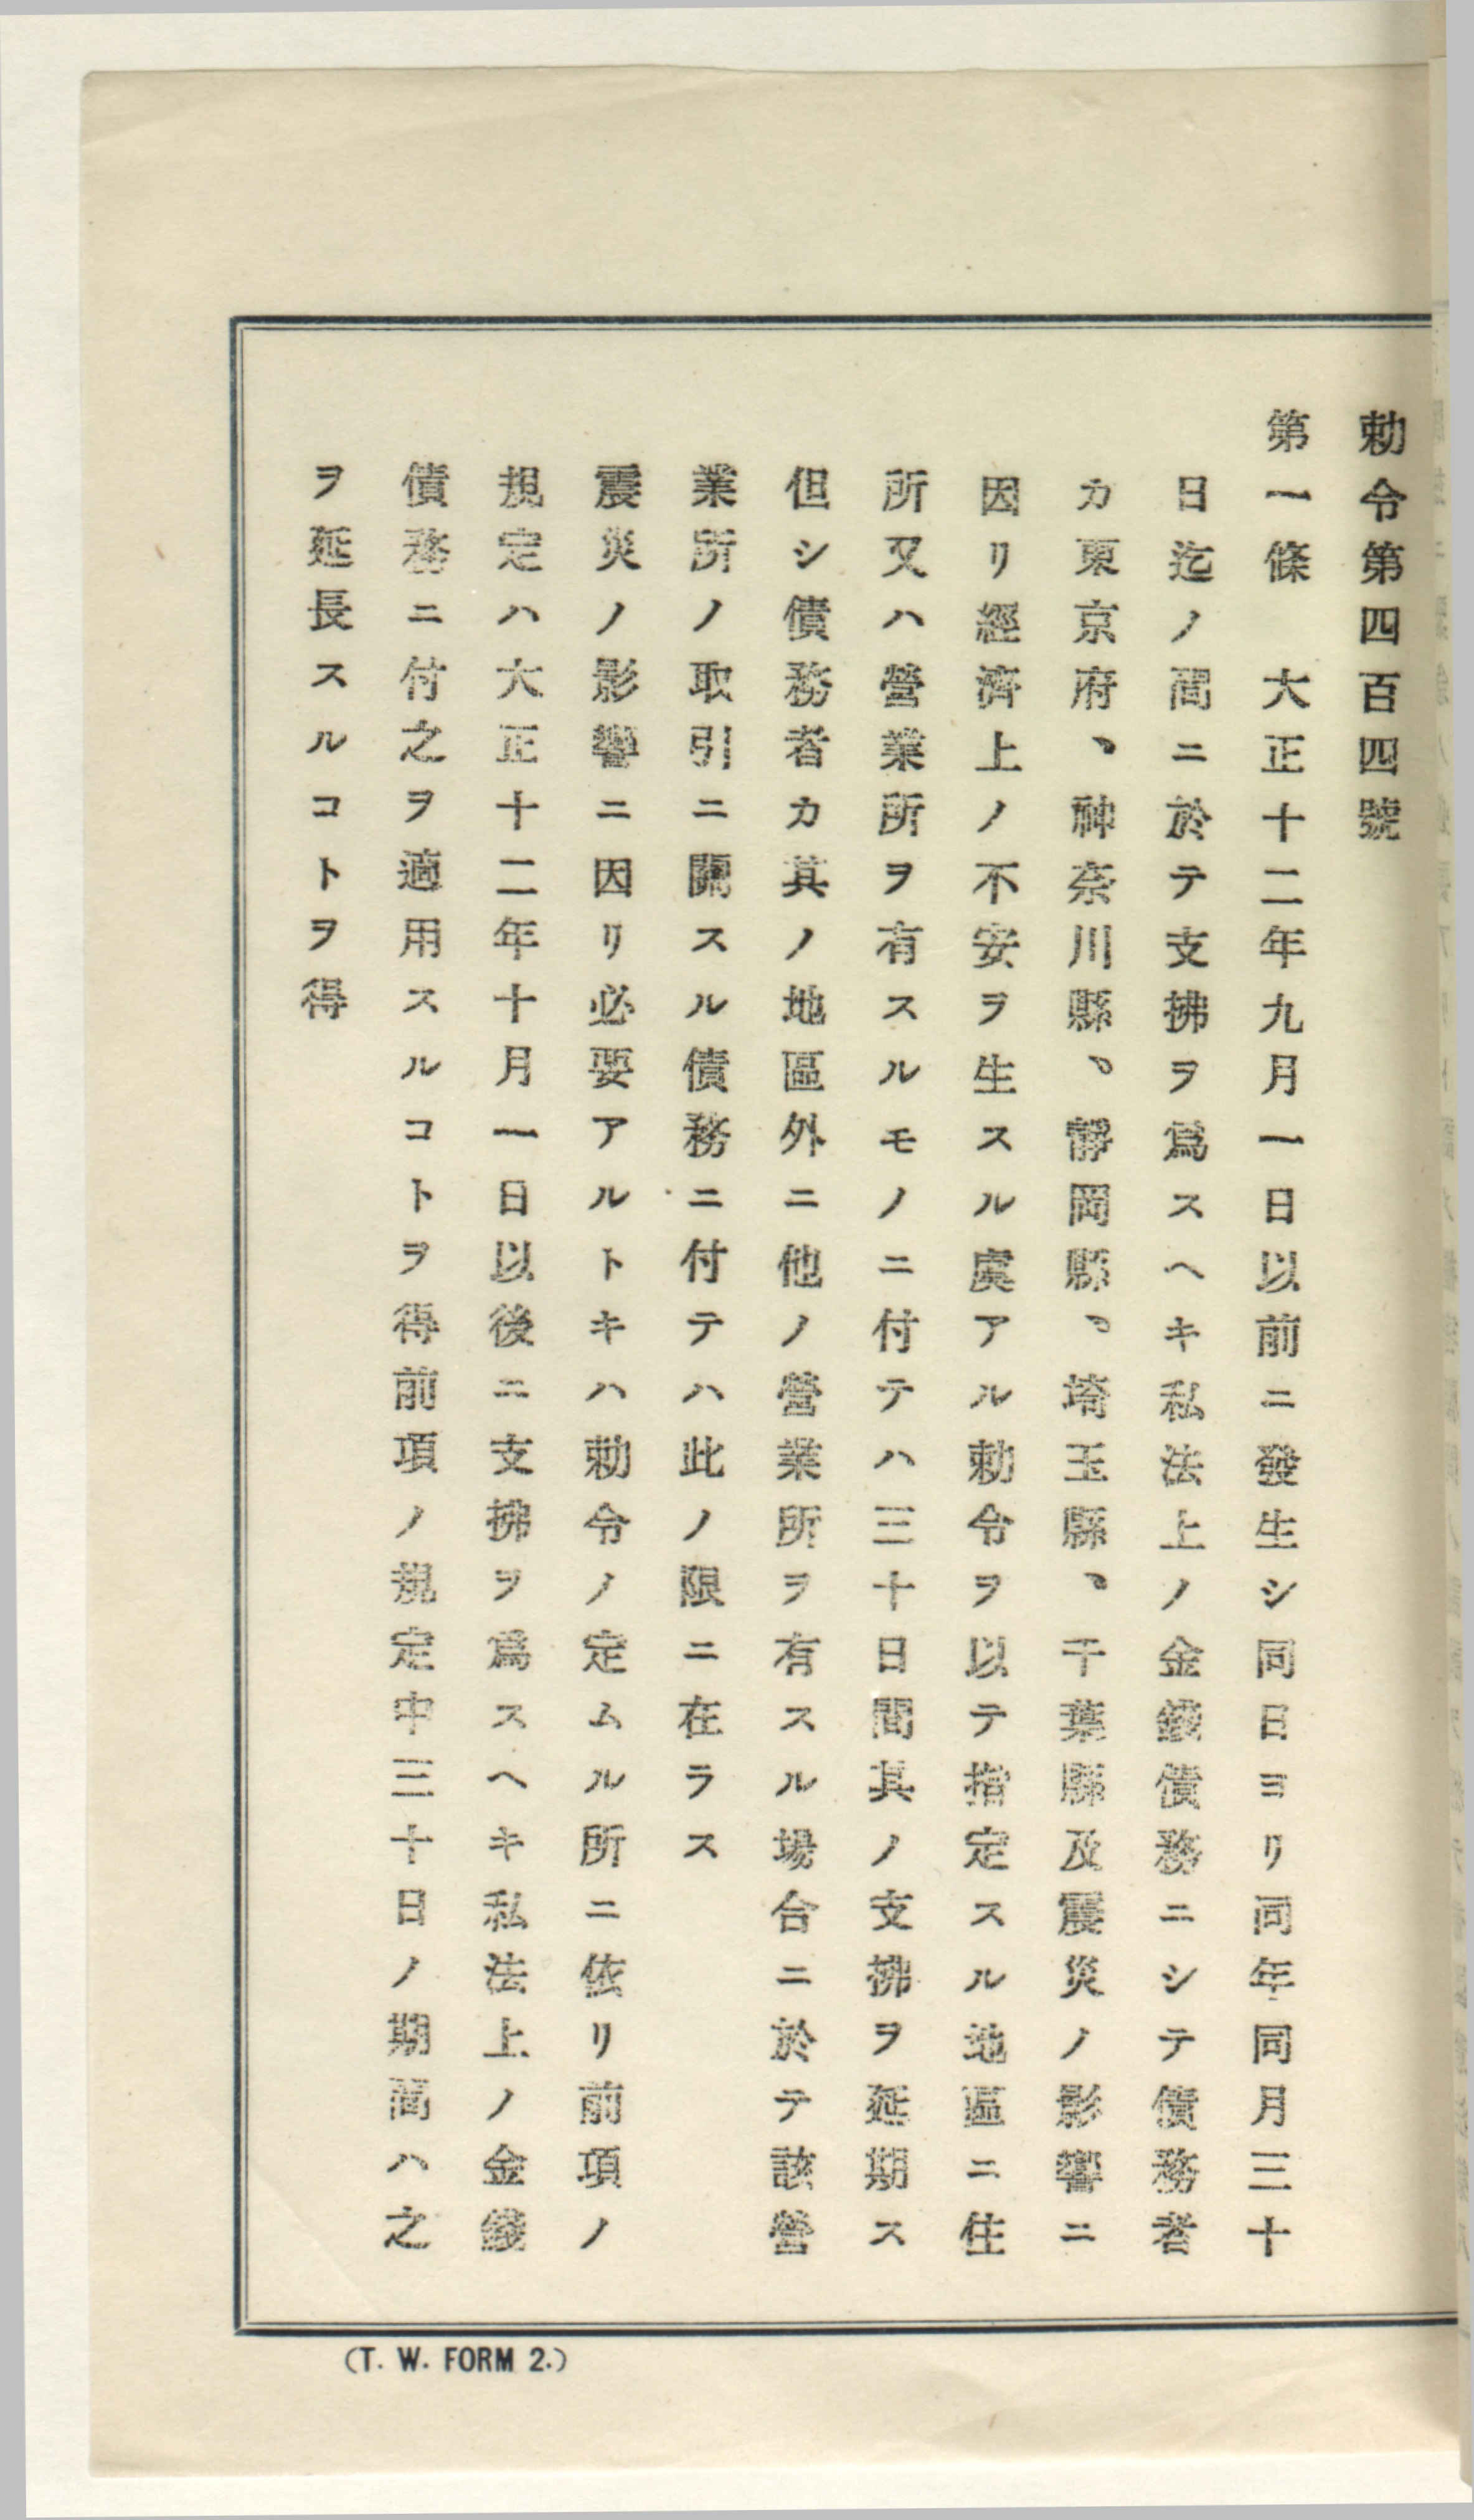 勅令第四百四號
第一條　大正十二年九月一日以前ニ發生シ同日ヨリ同年同月三十
日迄ノ間ニ於テ支拂ヲ爲スヘキ私法上ノ金錢債務ニシテ債務者
カ東京府、神奈川縣、靜岡縣、埼玉縣、千葉縣及震災ノ影響ニ
因リ經濟上ノ不安ヲ生スル虞アル勅令ヲ以テ指定スル地區ニ住
所又ハ營業所ヲ有スルモノニ付テハ三十日間其ノ支拂ヲ延期ス
但シ債務者カ其ノ地區外ニ他ノ營業所ヲ有スル場合ニ於テ該營
業所ノ取引ニ關スル債務ニ付テハ此ノ限ニ在ラス
震災ノ影響ニ因リ必要アルトキハ勅令ノ定ムル所ニ依リ前項ノ
規定ハ大正十二年十月一日以後ニ支拂ヲ爲スヘキ私法上ノ金錢
債務ニ付之ヲ適用スルコトヲ得前項ノ規定中三十日ノ期間ハ之
ヲ延長スルコトヲ得
(T. W. FORM 2.)